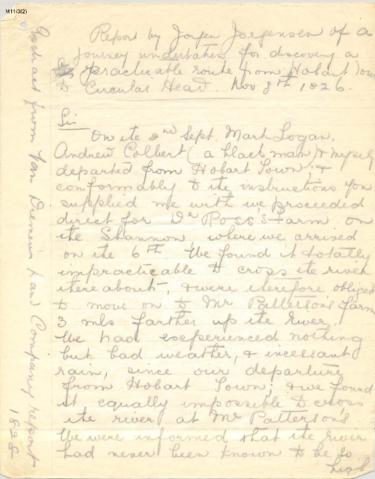 M11/3(2)
Report by Jorgen Jorgensen of a
journey undertaken for discovering a
practicable route from Hobart Town
to Circular Head. Nov 8th 1826.
Sir
On the 2nd Sept. Mark Logan,
Andrew Colbert (a black man) & myself
departed from Hobart Town, &
conformably to the instructions you
supplied me with we proceeded
direct for Dr Ross's Farm on
the Shannon where we arrived
on the 6th. We found it totally
impracticable to cross the river
thereabout, & were therefore obliged
to move on to Mr Patterson's farm
3 mls farther up the river.
We had experienced nothing
but bad weather, & incessant
rain, since our departure
from Hobart Town, & we found
it equally impossible to cross
the river at Mr Patterson's
We were informed that the river
had never been known to be so
high
Extract from Van Diemens Land Company report
1828